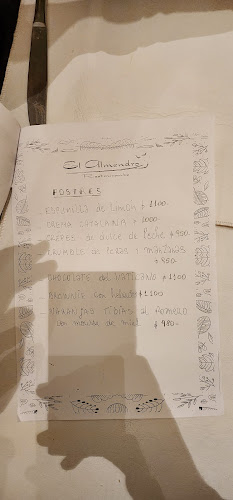 El Almendro
Restaurante
POSTRES
- ESPUMITA de Limón $ 1100
- CREMA CATALANA $ 1000
- CREPES de dulce de leche $ 950
- CRUMBLE de peras y manzanas
$ 950
- CHOCOLATE del VATICANO $ 1100
- BROWNIE con helado $ 1100
- NARANJAS TIBIAS al ROMERO
con mousse de miel $ 980